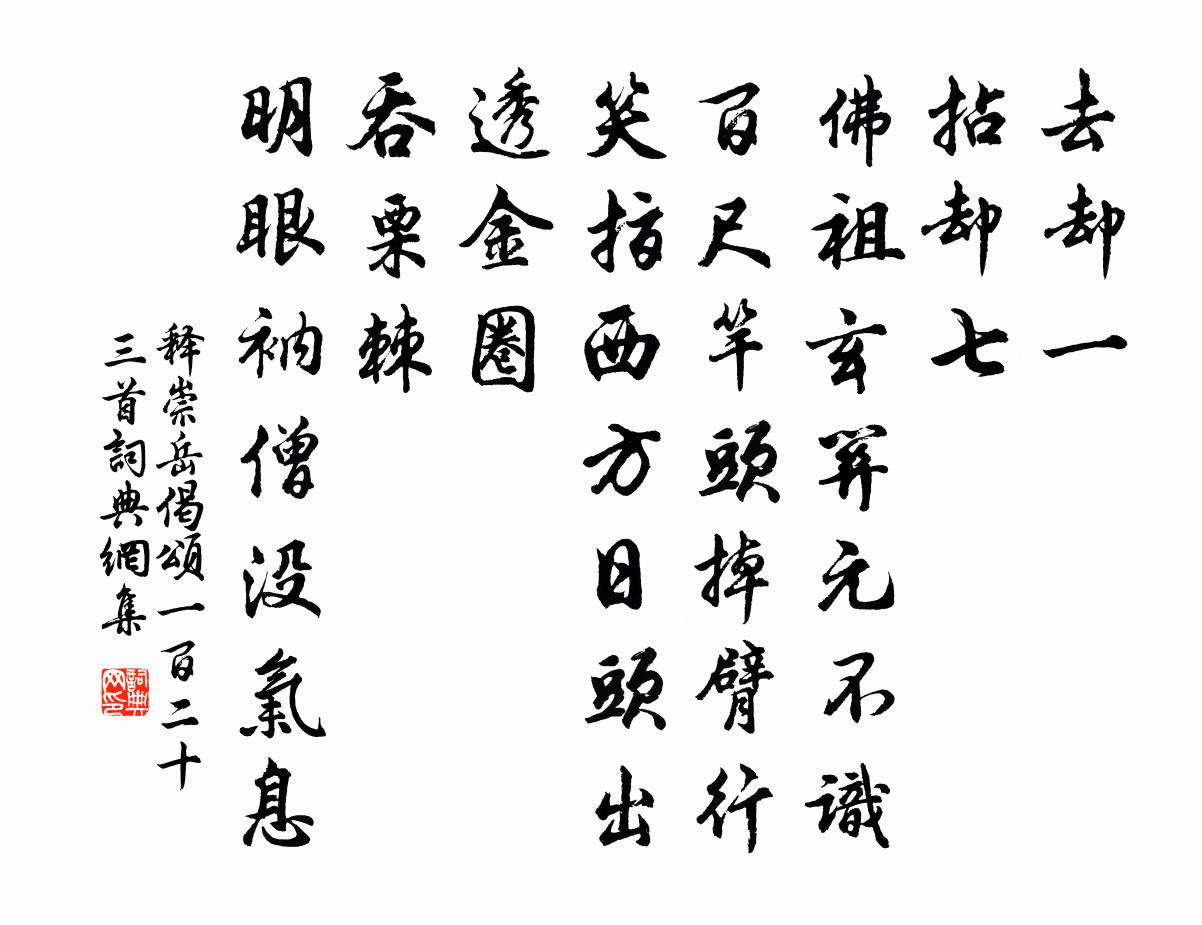 去却一
拈却七
佛祖玄關元不識
百尺竿頭掉臂行
笑指西方日頭出
透金圈
吞栗棘
明眼衲僧没氣息
释崇岳偈頌一百二十
三首詞典網集
詞典网印